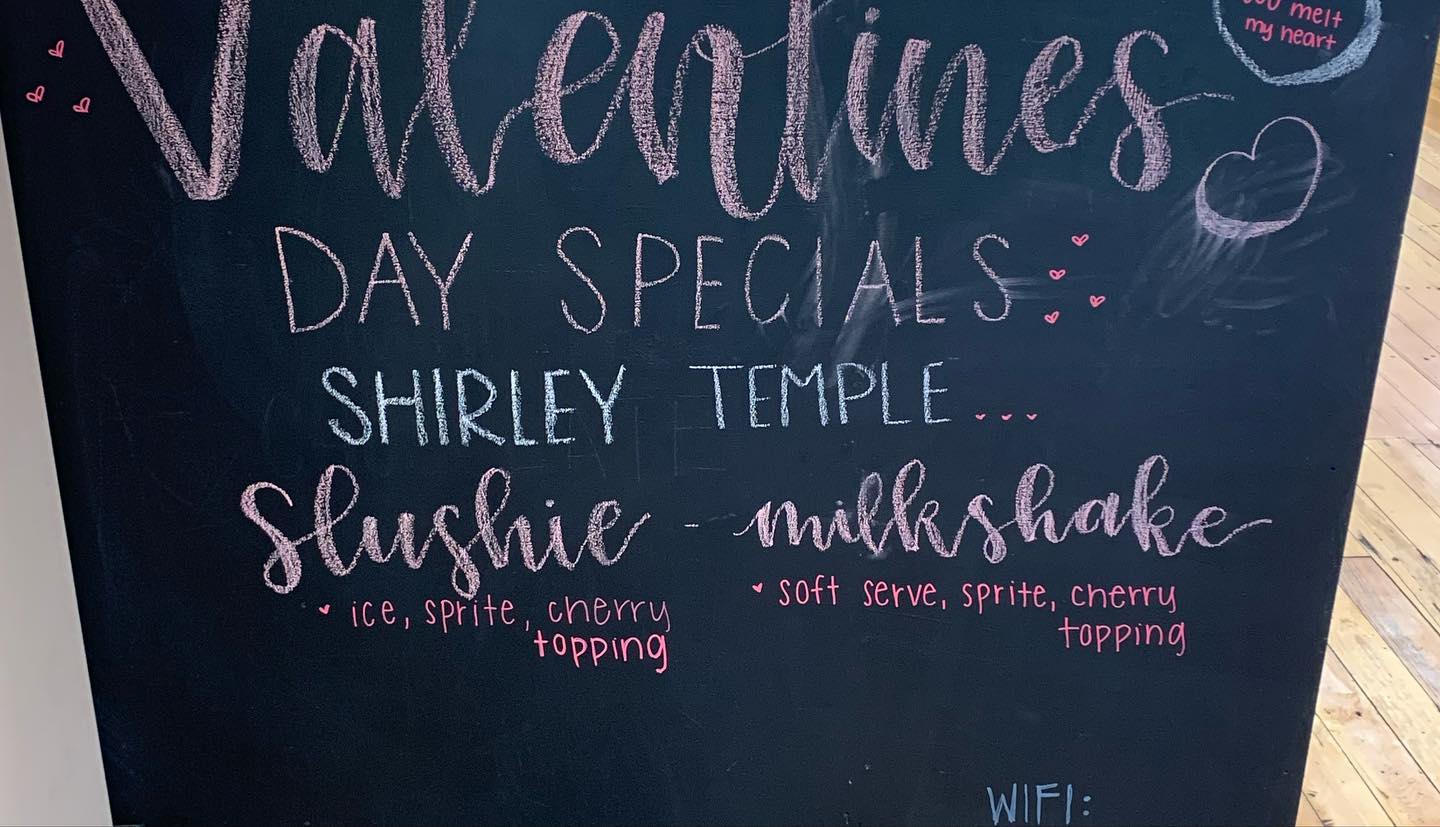 melt
my heart
Valentines
DAY SPECIALS
SHIRLEY TEMPLE...
slushie - milkshake
ice, sprite, cherry
topping
soft serve, sprite, cherry
topping
WIFI: